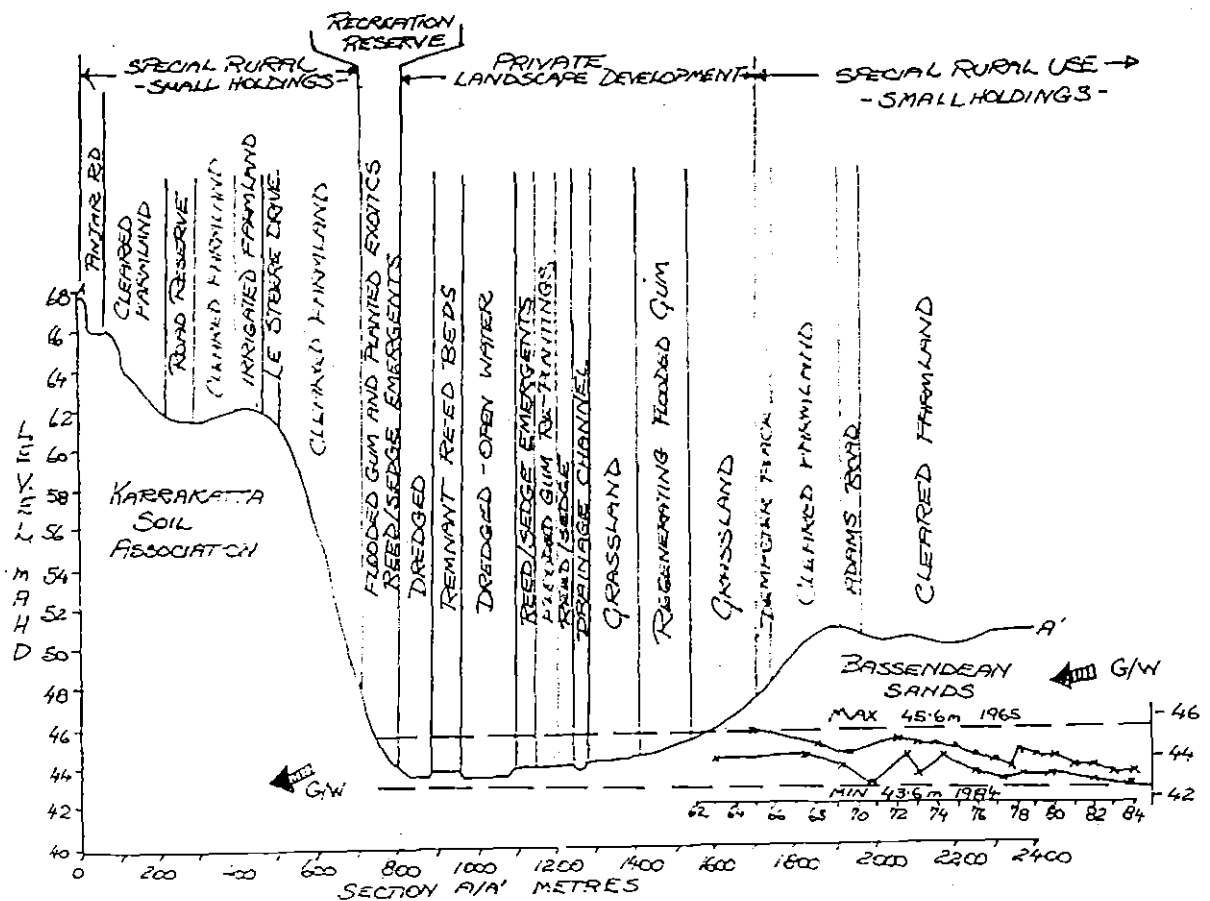 RECREATION
RESERVE
SPECIAL RURAL
-SMALL HOLDINGS-
PRIVATE
LANDSCAPE DEVELOPMENT
SPECIAL RURAL USE
-SMALLHOLDINGS-
CLEARED
FARMLAND
ROAD RESERVE
CLEARED FARMLAND
IRRIGATED FARMLAND
DRIVE
CLEARED FARMLAND
FLOODED GUM AND PLANTED EXOTICS
REED/SEDGE EMERGENTS
DREDGED
REMNANT REED BEDS
DREDGED-OPEN WATER
REED/SEDGE EMERGENTS
FLOODED GUM RE-PLANTINGS
REED/SEDGE
DRAINAGE CHANNEL
GRASSLAND
REGENERATING FLOODED GUM
GRASSLAND
CLEARED FARMLAND
ADAMS ROAD
CLEARED FARMLAND
68
66
64
62
60
58
56
54
52
50
48
46
44
43
42
40
LEVEL m AHD
KARRAKATTA
SOIL
ASSOCIATION
A'
BASSENDEAN
SANDS
G/W
MAX 45.6m 1965
46
44
42
G/W
MIN 43.6m 1984
62 64 66 68 70 72 74 76 78 80 82 84
0 200 400 600 800 1000 1200 1400 1600 1800 2000 2200 2400
SECTION A/A' METRES